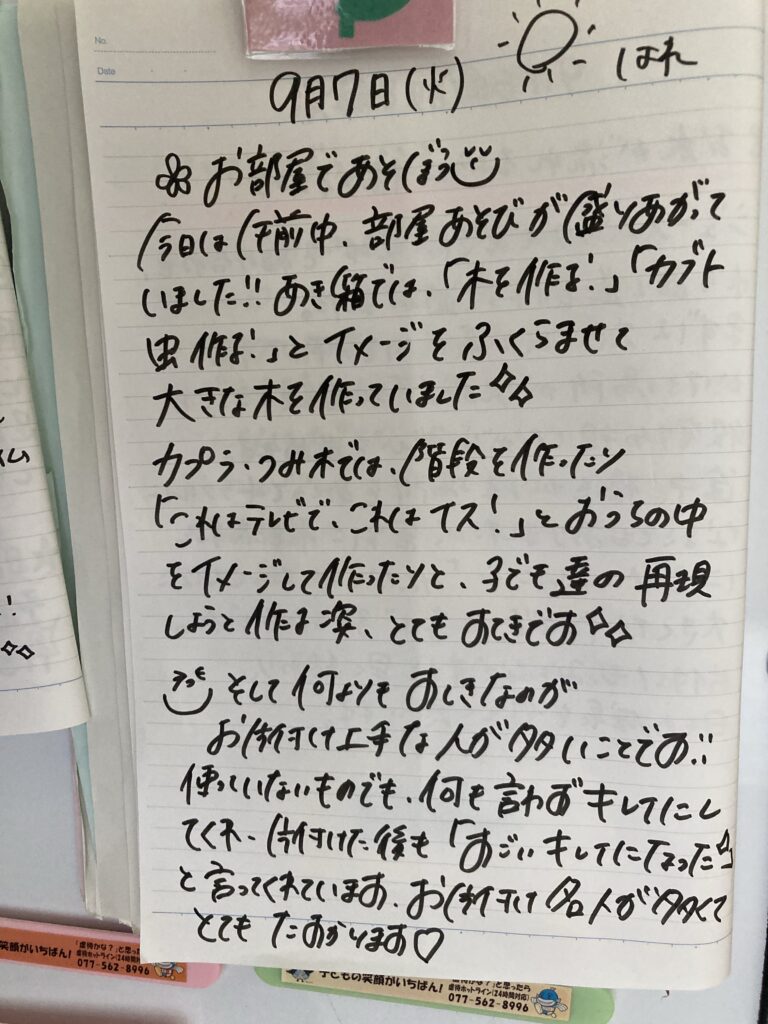 No.
Date
9月7日(火) はれ
お部屋であそぼう
今日は午前中、部屋あそびが盛りあがって
いました!! あき箱では、「木を作る!」「カブト
虫作る!」とイメージをふくらませて
大きな木を作っていました
カプラ・つみ木では、階段を作ったり
「これはテレビで、これはイス!」とおうちの中
をイメージして作ったりと、子ども達の再現
しようと作る姿、とてもすてきです
そして何よりもすてきなのが
お片付け上手な人が多いことです!!
使っていないものでも、何も言わずキレイにし
てくれ、片付けた後も「すごいキレイになった」
と言ってくれています。お片付け名人が多くて
とてもたすかります♡
イム
!
笑顔がいちばん! 「虐待かな?」と思ったら
虐待ホットライン(24時間対応)
077-562-8996
子どもの笑顔がいちばん! 「虐待かな?」と思ったら
虐待ホットライン(24時間対応)
077-562-8996